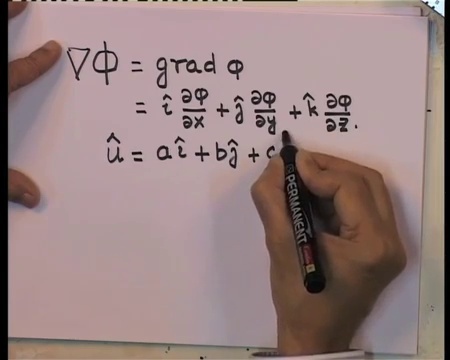 ∇Φ = grad φ
= î ∂φ/∂x + ĵ ∂φ/∂y + k̂ ∂φ/∂z.
û = aî + bĵ + c
PERMANENT